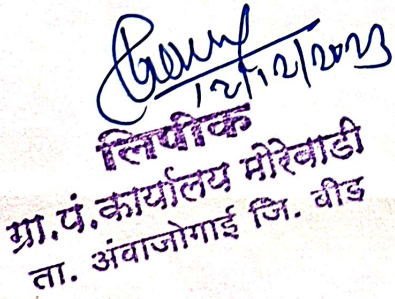 12/12/2023
लिपीक
ग्रा.पं.कार्यालय मोरेवाडी
ता. अंबाजोगाई जि. बीड